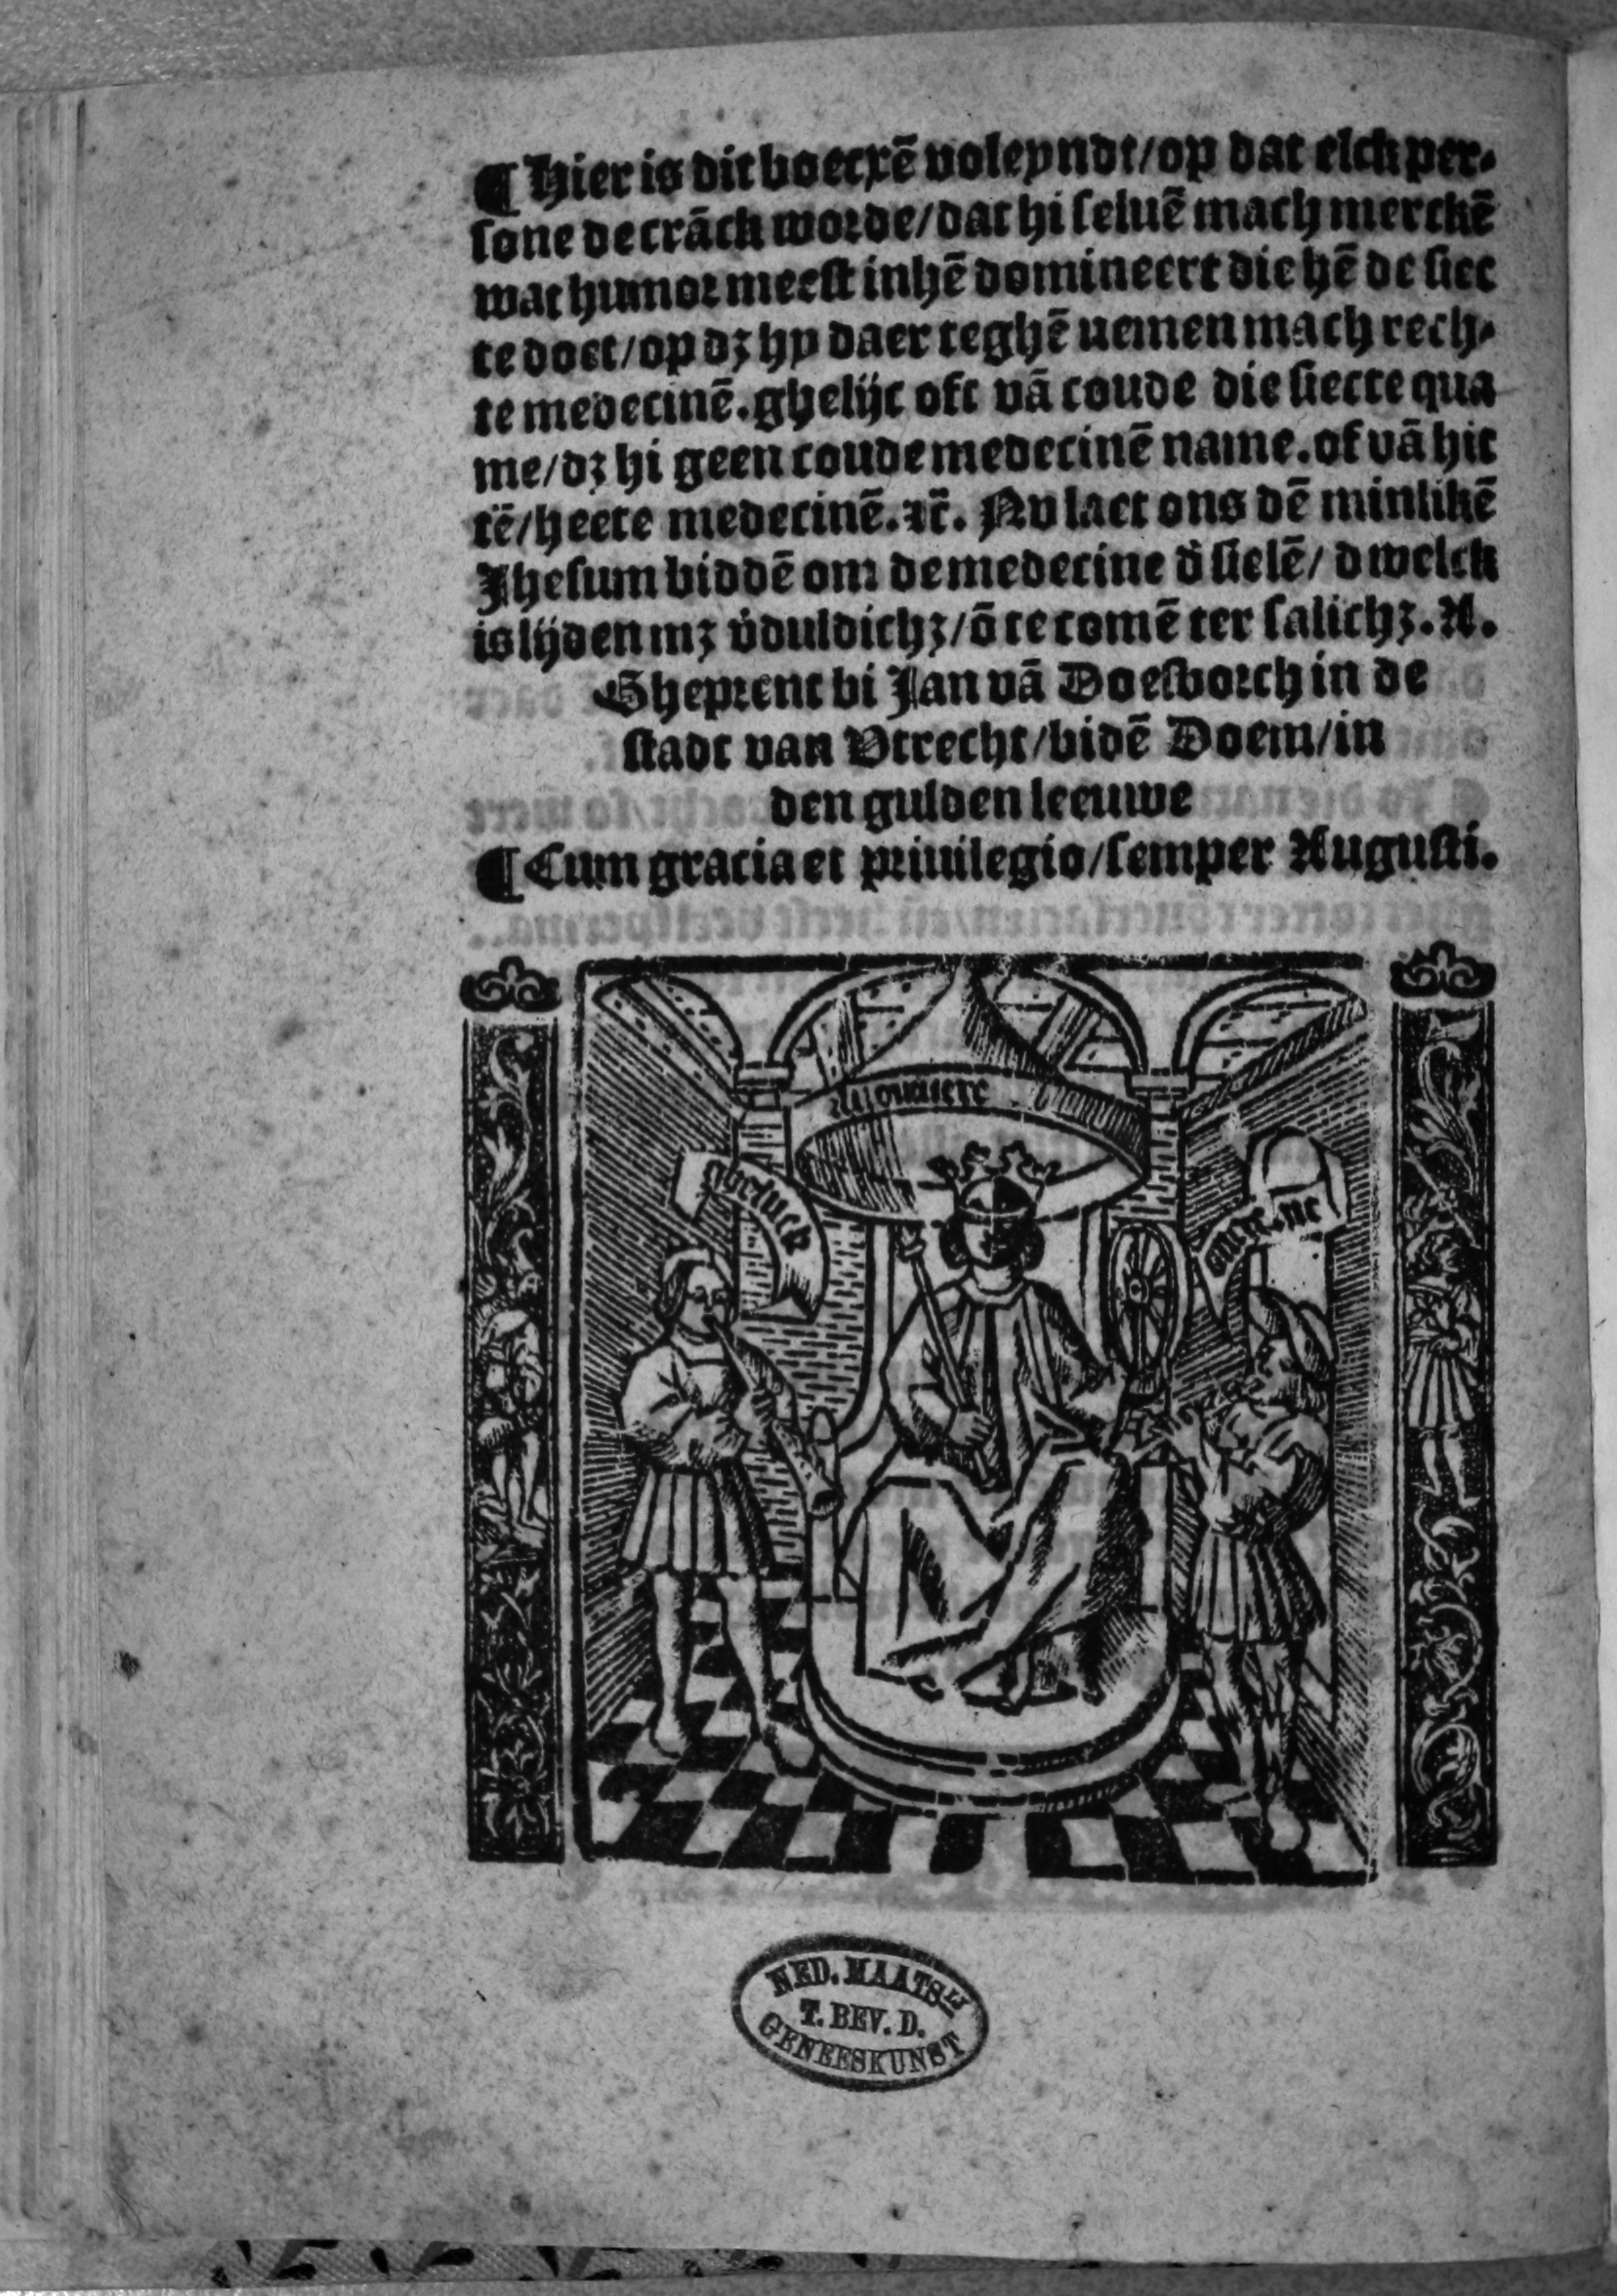 ¶ Hier is dit boecxē voleyndt/op dat elck per-
sone de crāck worde/dat hi seluē mach merckē
wat humor meest in hē domineert die hē de siec
te doet/op dʒ hy daer teghē nemen mach rech-
te medecinē. ghelijc oft vā coude die siecte qua
me/dʒ hi geen coude medecinē name. of vā hit
tē/heete medecinē. ⁊c̄. Nv laet ons dē minlikē
Jhesum biddē om de medecine d̕ sielē/ dwelck
is lijden mʒ v̕duldichʒ/ō te comē ter salichʒ. A.
Gheprent bi Jan vā Doesborch in de
stadt van Vtrecht/bidē Doem/in
den gulden leeuwe
¶ Cum gracia et priuilegio/semper Augusti.
Auontuere
gheluck
NED. MAATSCH.
T. BEV. D.
GENEESKUNST